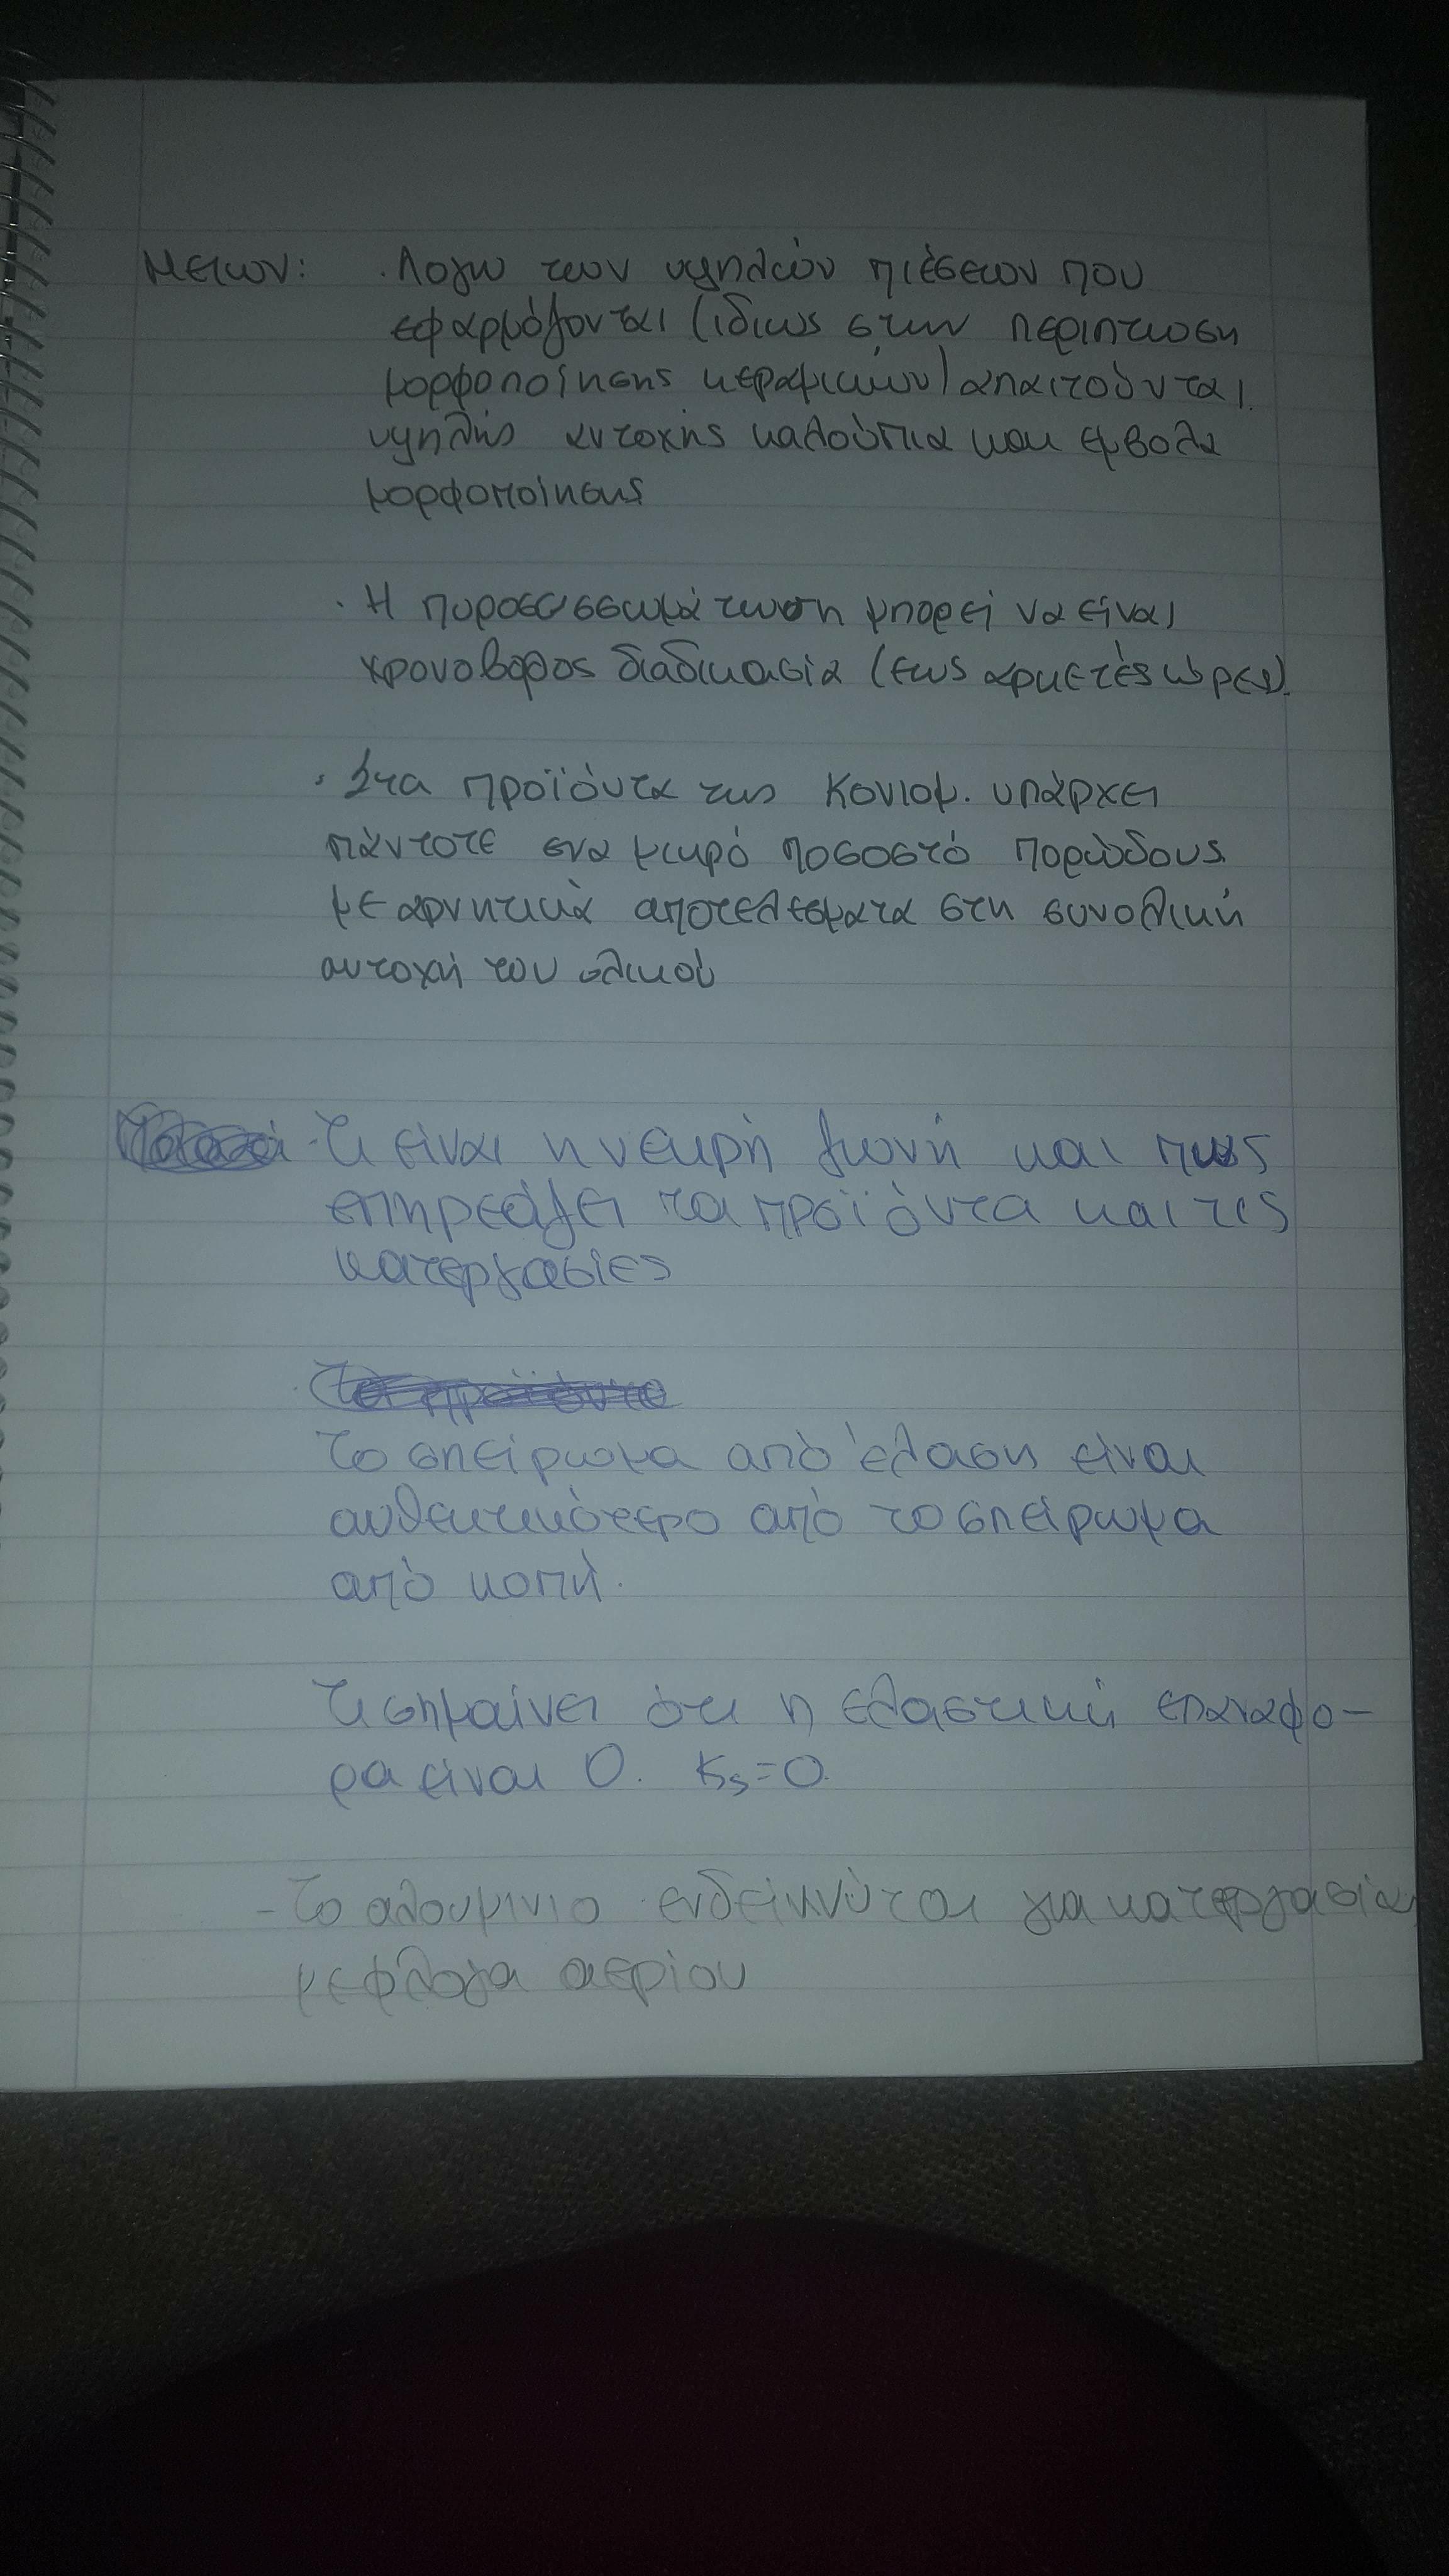 Μειων: · Λογω των υψηλών πιέσεων που
εφαρμόζονται (ιδιως στην περιπτωση
μορφοποίησης κεραμικών) απαιτούνται
υψηλής αντοχής καλούπια και εμβολα
μορφοποίησης
· Η πυροσυσσωμάτωση μπορεί να είναι
χρονοβορος διαδικασία (εως αρκετές ώρες).
· Στα προϊόντα της Κονιομ. υπάρχει
πάντοτε ενα μικρό ποσοστό πορώδους
με αρνητικά αποτελεσματα στη συνολική
αντοχή του υλικού
- Τι είναι η νεκρή ζωνή και πως
επηρεάζει τα προϊόντα και τις
κατεργασίες
Το σπείρωμα από έλαση είναι
ανθεκτικότερο από το σπείρωμα
από κοπή.
Τι σημαίνει ότι η ελαστική επαναφο-
ρα είναι 0. Ks=0.
- Το αλουμινιο ενδείκνύται για κατεργασία
με φλογα αερίου